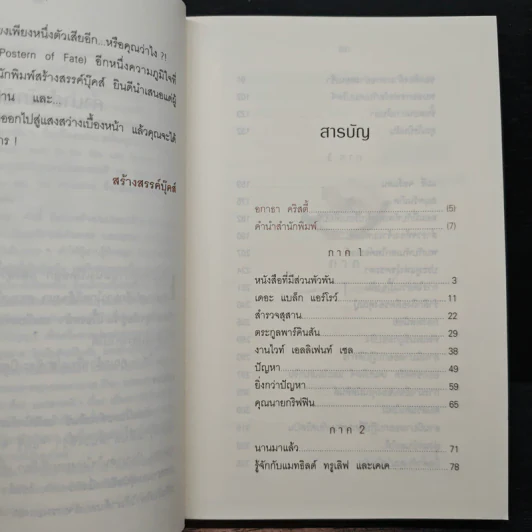 งเพียงหนึ่งตัวเสียอีก...หรือคุณว่าไง ?!
Postern of Fate) อีกหนึ่งความภูมิใจที่
นักพิมพ์สร้างสรรค์บุ๊คส์ ยินดีนำเสนอแด่ผู้
าน และ...
ออกไปสู่แสงสว่างเบื้องหน้า แล้วคุณจะได้
าร !
สร้างสรรค์บุ๊คส์
สารบัญ
อกาธา คริสตี้ (5)
คำนำสำนักพิมพ์ (7)
ภาค 1
หนังสือที่มีส่วนพัวพัน 3
เดอะ แบล็ก แอร์โรว์ 11
สำรวจสุสาน 22
ตระกูลพาร์คินสัน 29
งานไวท์ เอลลิเฟนท์ เซล 38
ปัญหา 49
ยิ่งกว่าปัญหา 59
คุณนายกริฟฟิน 65
ภาค 2
นานมาแล้ว 71
รู้จักกับแมทธิลด์ ทรูเลิฟ และเคเค 78